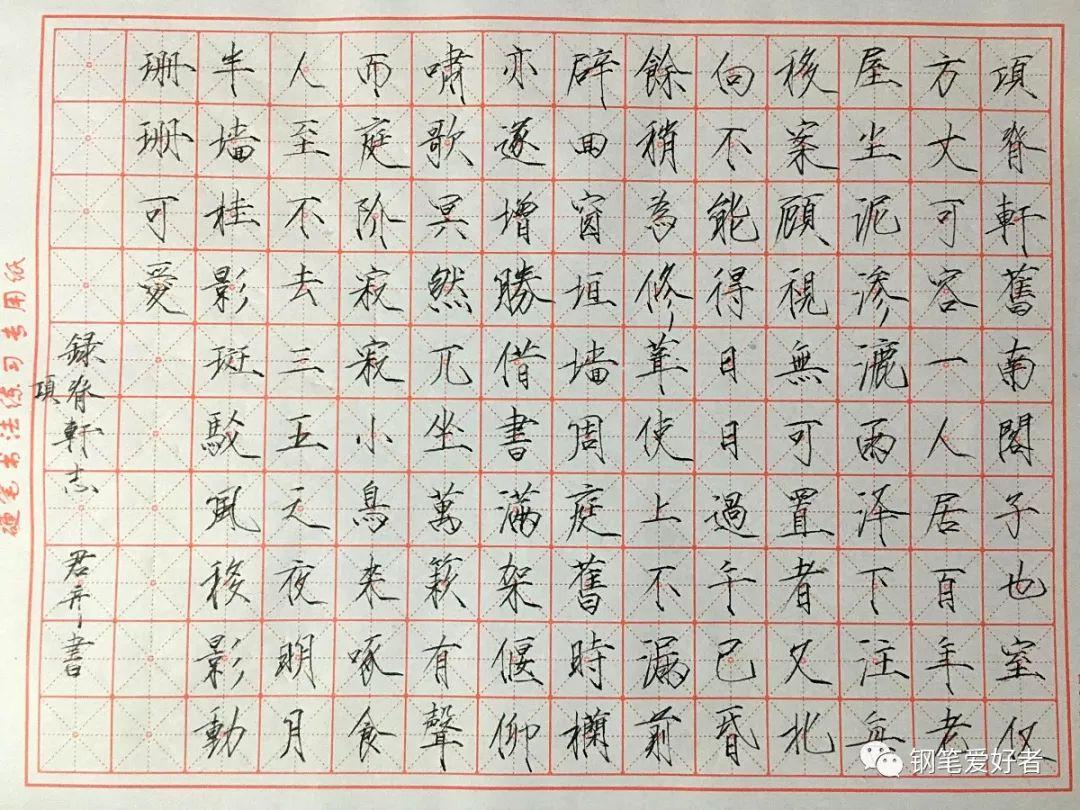 項脊軒舊南閣子也室仅
方丈可容一人居百年老
屋尘泥渗漉雨泽下注每
移案顾視無可置者又北
向不能得日日過午已昏
餘稍為修葺使上不漏前
辟四窗垣墙周庭舊時欄
亦遂增勝借書满架偃仰
嘯歌冥然兀坐萬籁有聲
而庭阶寂寂小鳥来啄食
人至不去三五之夜明月
半墙桂影斑駁風移影動
珊珊可愛
録脊軒志 君弃書
項
硬笔书法练习专用纸
钢笔爱好者